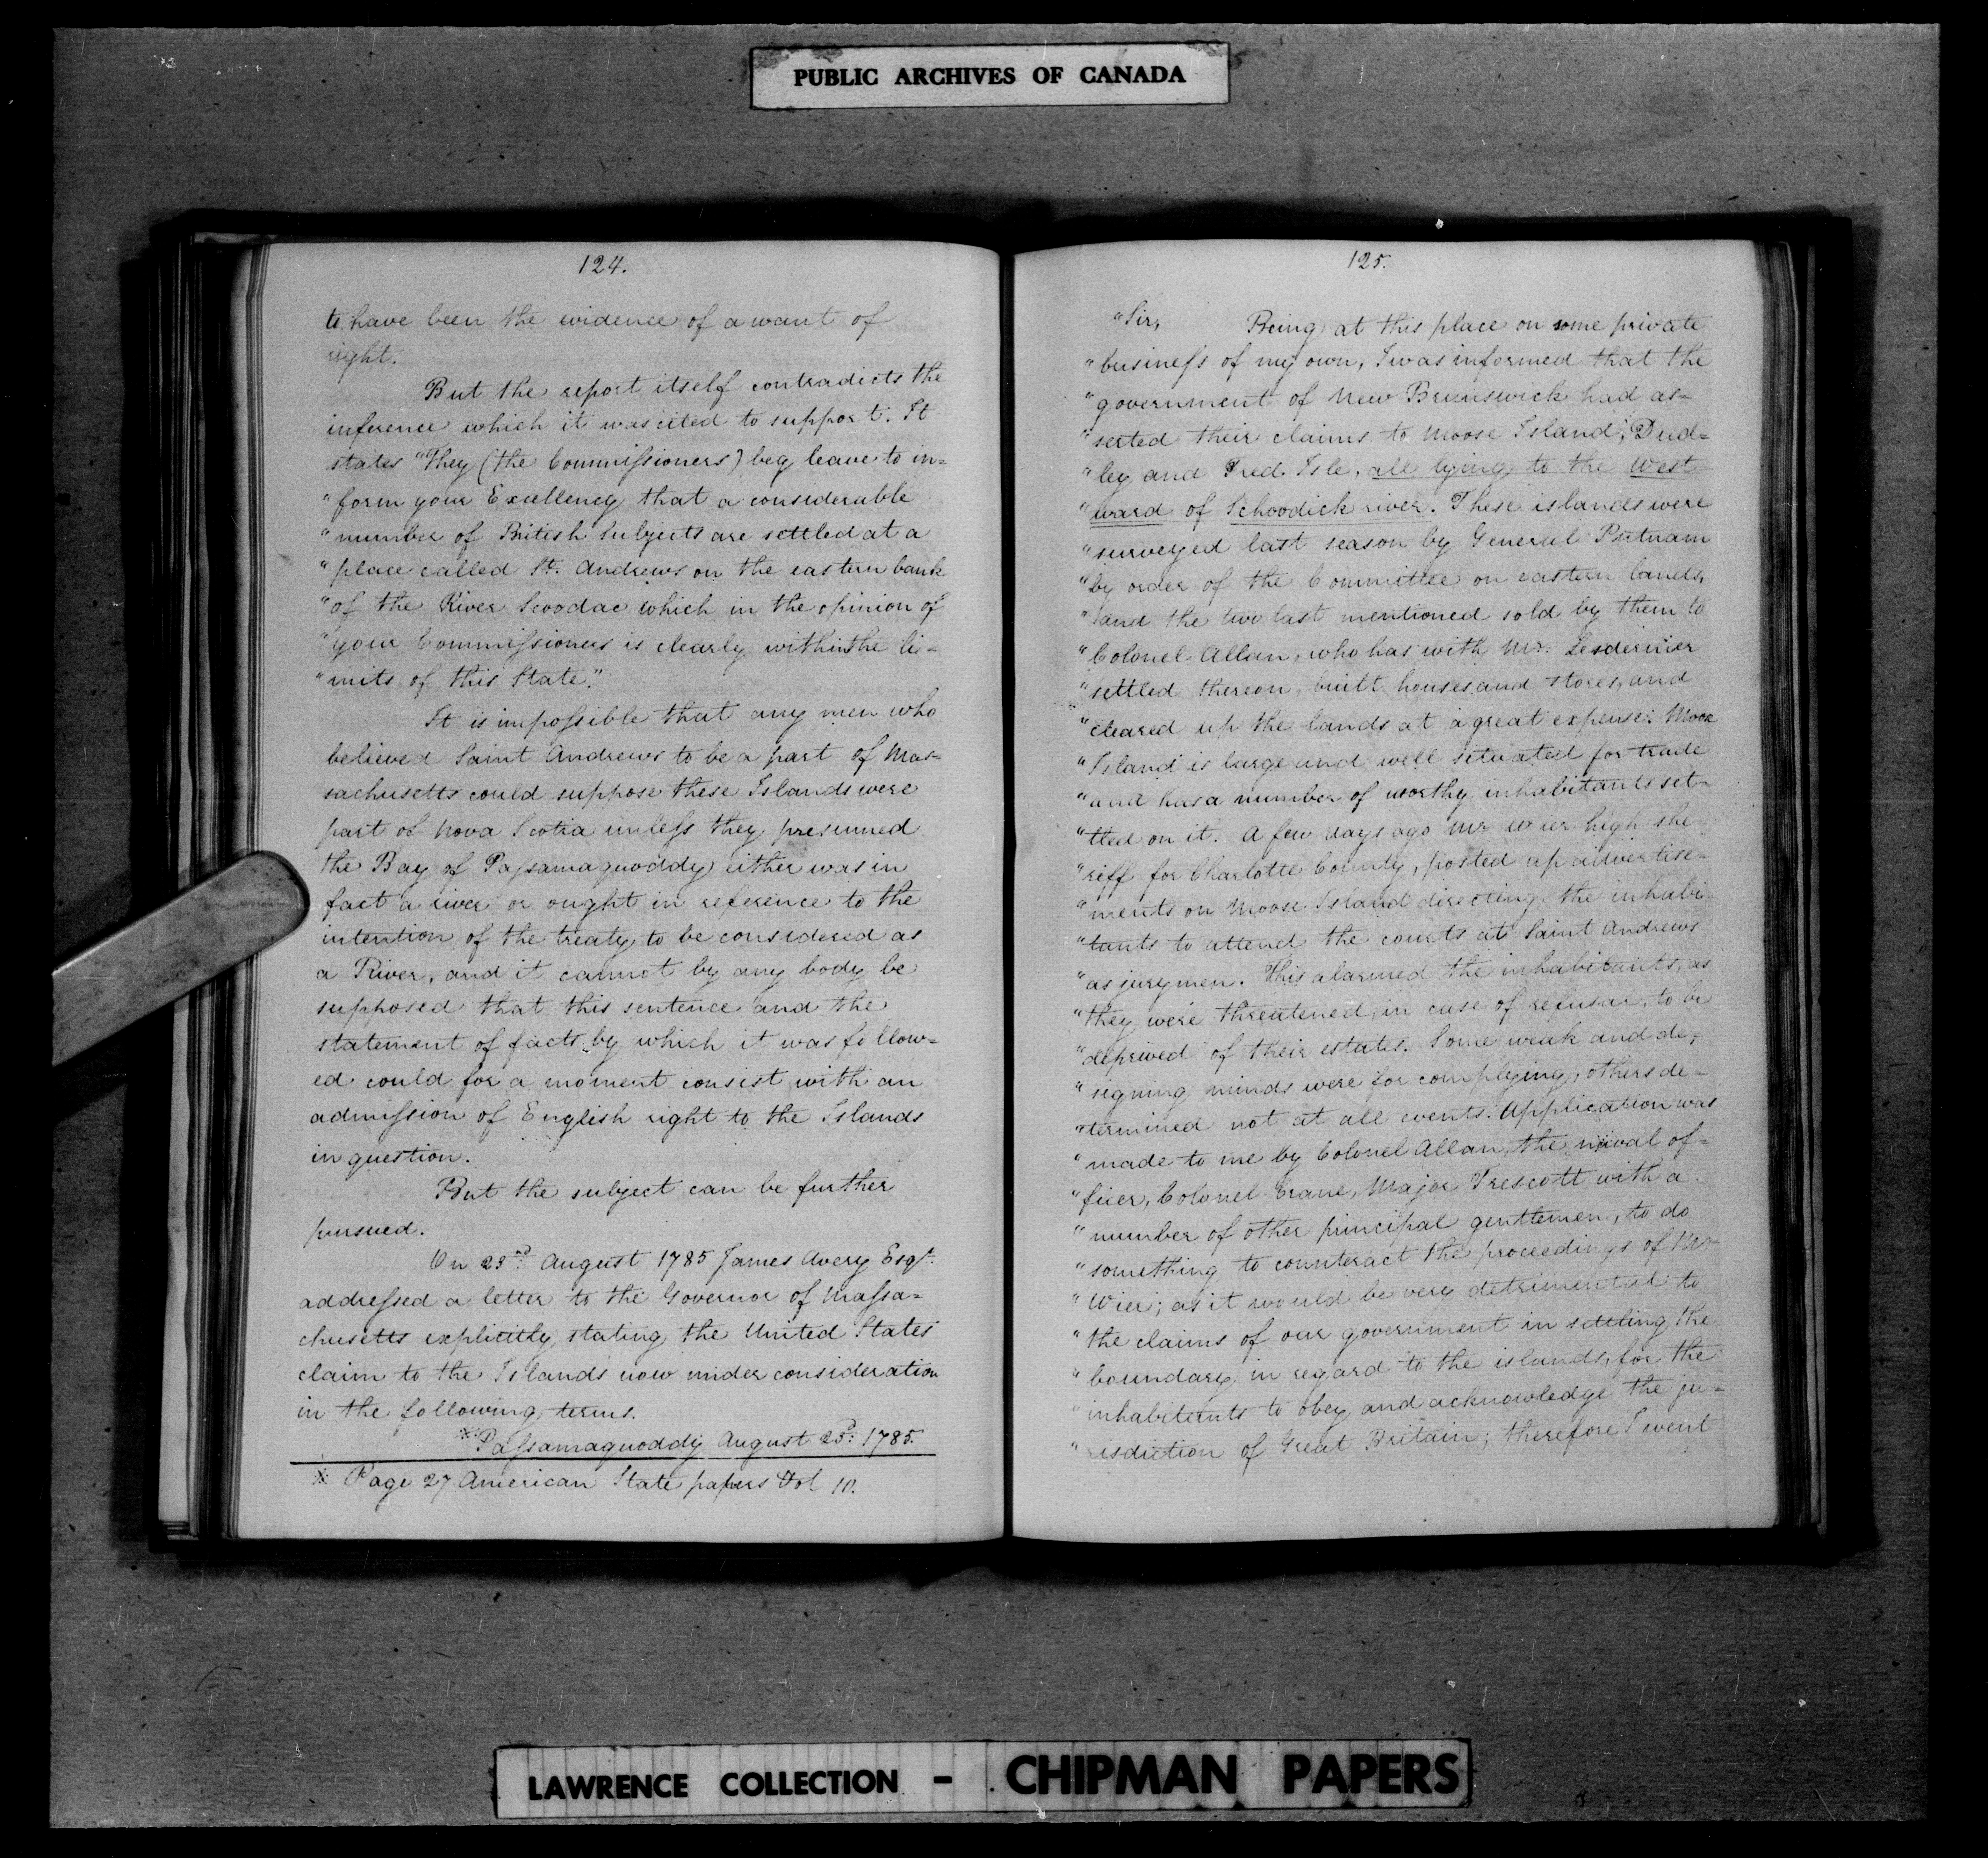 PUBLIC ARCHIVES OF CANADA
124.
to have been the evidence of a want of
right.
But the report itself contradicts the
inference which it was cited to support. It
states "They (the Commissioners) beg leave to in-
"form your Excellency that a considerable
"number of British subjects are settled at a
"place called St. Andrews on the eastern bank
"of the River Scoodac which in the opinion of
"your Commissioners is clearly within the li-
"mits of this State."
It is impossible that any men who
believed Saint Andrews to be a part of Mas-
sachusetts could suppose these Islands were
part of Nova Scotia unless they presumed
the Bay of Passamaquoddy either was in
fact a river or ought in reference to the
intention of the treaty to be considered as
a River, and it cannot by any body be
supposed that this sentence and the
statement of facts by which it was follow=
ed could for a moment consist with an
admission of English right to the Islands
in question.
But the subject can be further
pursued.
On 23rd August 1785 James Avery Esqr.
addressed a letter to the Governor of Massa=
chusetts explicitly stating the United States
claim to the Islands now under consideration
in the following terms.
※Passamaquoddy August 23d: 1785.
※ Page 27 American State papers Vol 10.
125.
"Sir, Being at this place on some private
"business of my own, I was informed that the
"government of New Brunswick had as-
"serted their claims to Moose Island, Dud=
"ley and Fred. Isle, all lying to the west
"ward of Schoodick river. These islands were
"surveyed last season by General Putnam
"by order of the Committee on eastern lands,
"and the two last mentioned sold by them to
"Colonel Allan, who has with Mr. Lesdernier
"settled thereon, built houses and stores, and
"cleared up the lands at a great expense. Moose
"Island is large and well situated for trade
"and has a number of worthy inhabitants set-
"tled on it. A few days ago Mr Wier high she-
"riff for Charlotte County, posted up advertise-
"ments on Moose Island directing the inhabi-
"tants to attend the courts at Saint Andrews
"as jurymen. This alarmed the inhabitants, as
"they were threatened, in case of refusal, to be
"deprived of their estates. Some weak and de-
"signing minds were for complying, others de-
"termined not at all events. Application was
"made to me by Colonel Allan, the naval of=
"ficer, Colonel Crane, Major Trescott with a
"number of other principal gentlemen, to do
"something to counteract the proceedings of Mr
"Wier; as it would be very detrimental to
"the claims of our government in settling the
"boundary in regard to the islands, for the
"inhabitants to obey and acknowledge the ju-
"risdiction of Great Britain; therefore I went
LAWRENCE COLLECTION - CHIPMAN PAPERS